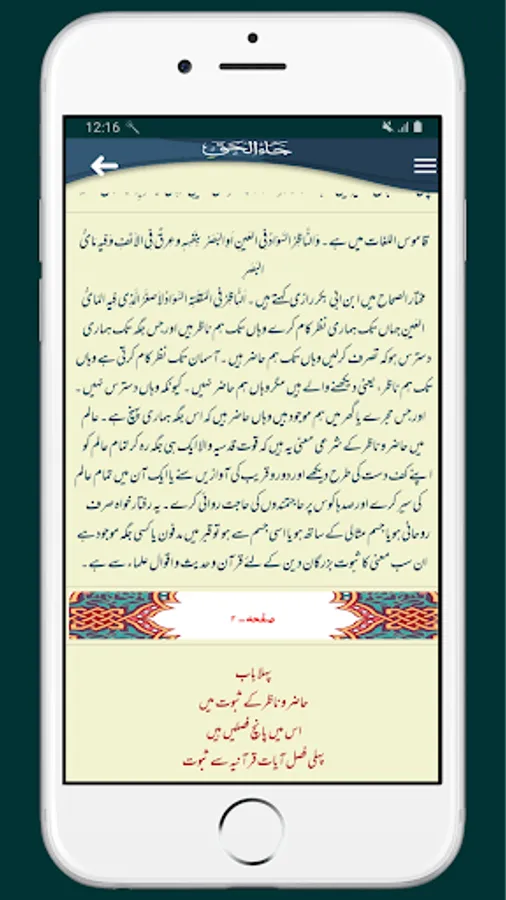 12:16
جاءالحق
قاموس اللغات میں ہے۔ وَالنَّاظِرُ السَّوَادُ فِی العَینِ اَوِ البَصَرُ بِنَفسِہٖ وَ عِرقٌ فِی الاَنفِ وَفِیہِ مَائُ
البَصَرِ
مختار الصحاح میں ابن ابی بکر رازی کہتے ہیں۔ اَلنَّاظِرُ فِی المُقلَۃِ السَّوَادُ لاَصغَرُ الَّذِی فِیہِ المَائُ
العَینِ جہاں تک ہماری نظر کام کرے وہاں تک ہم ناظر ہیں اور جس جگہ تک ہماری
دسترس ہو کہ تصرف کرلیں وہاں تک ہم حاضر ہیں۔ آسمان تک نظر کام کرتی ہے وہاں
تک ہم ناظر، یعنی دیکھنے والے ہیں مگر وہاں ہم حاضر نہیں۔ کیونکہ وہاں دسترس نہیں۔
اور جس حجرے یا گھر میں ہم موجود ہیں وہاں حاضر ہیں کہ اس جگہ ہماری پہنچ ہے۔ عالم
میں حاضر و ناظر کے شرعی معنی یہ ہیں کہ قوت قدسیہ والا ایک ہی جگہ رہ کر تمام عالم کو
اپنے کف دست کی طرح دیکھے اور دور و قریب کی آوازیں سنے یا ایک آن میں تمام عالم
کی سیر کرے اور صدہا کوس پر حاجتمندوں کی حاجت روائی کرے۔ یہ رفتار خواہ صرف
روحانی ہو یا جسم مثالی کے ساتھ ہو یا اسی جسم سے ہو جو قبر میں مدفون یا کسی جگہ موجود ہے
ان سب معنی کا ثبوت بزرگان دین کے لئے قرآن و حدیث و اقوال علماء سے ہے۔
صفحہ۔۲
پہلا باب
حاضر و ناظر کے ثبوت میں
اس میں پانچ فصلیں ہیں
پہلی فصل آیات قرآنیہ سے ثبوت